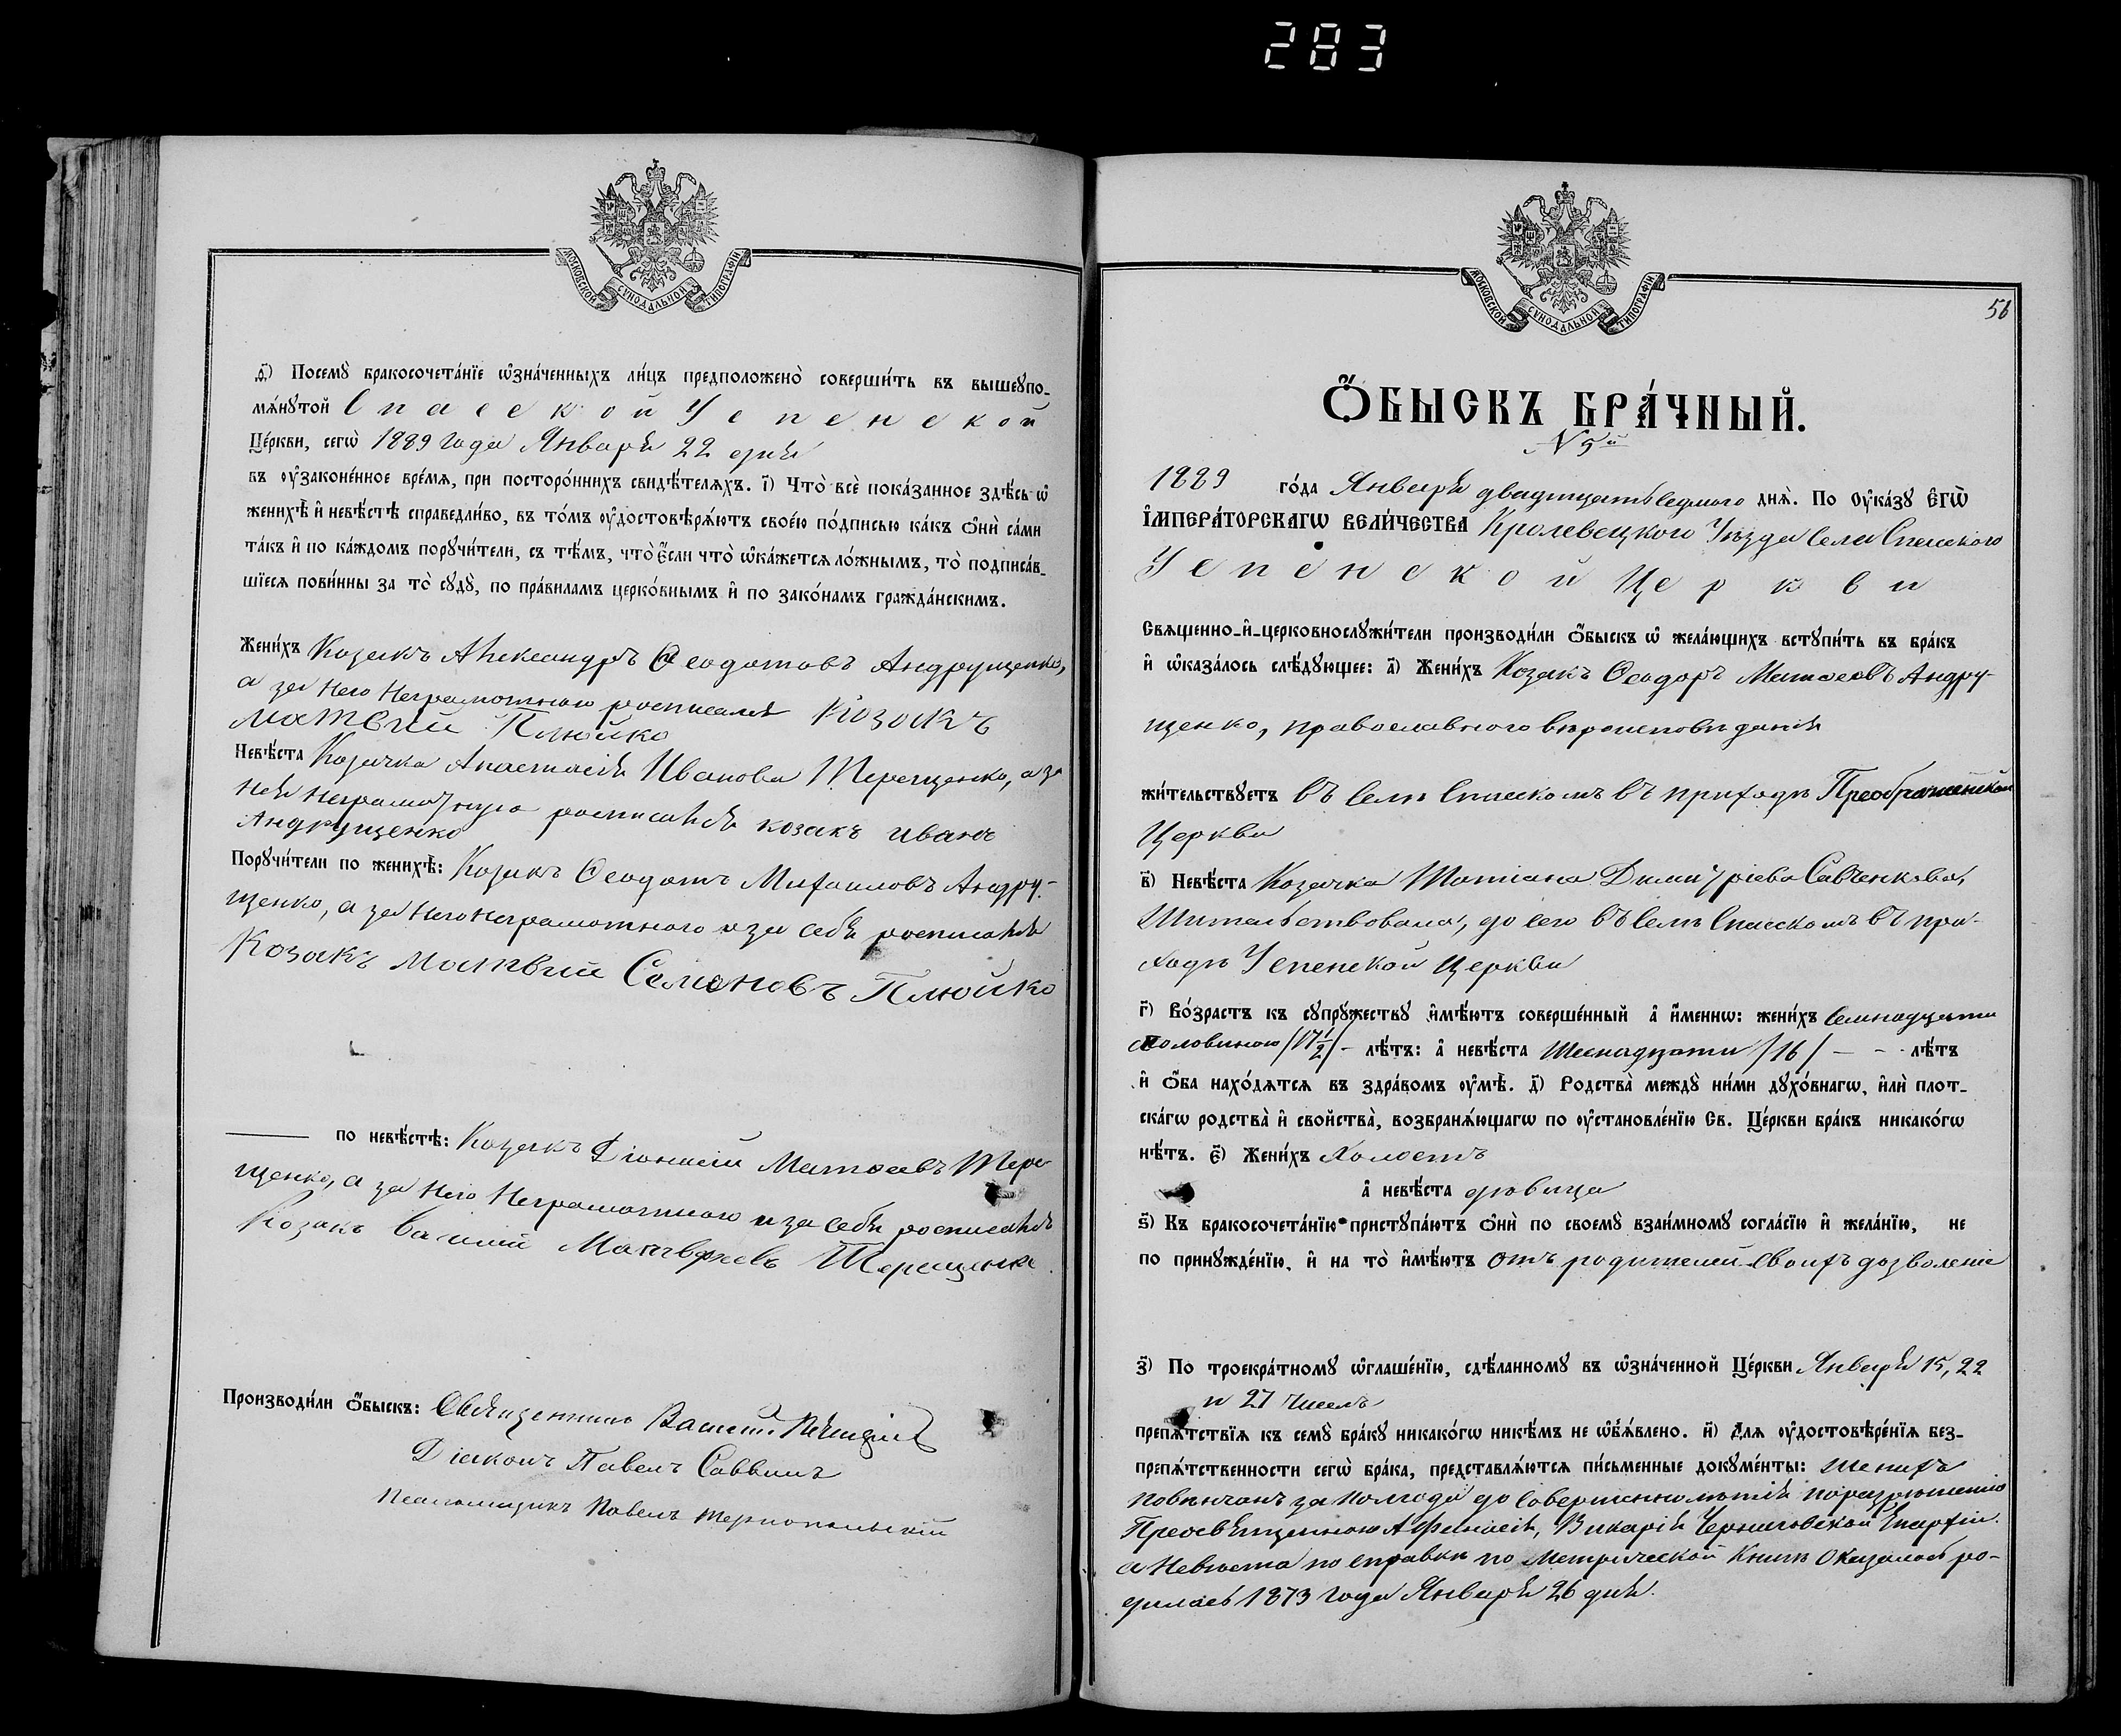 283
МОСКОВСКОЙ СѴНОДАЛЬНОЙ ТИПОГРАФІИ
д҃і) Посемꙋ̀ бракосочета́нїе ѡ҆зна́ченныхъ ли́цъ предположено̀ соверши́ть въ вышеꙋпо-
мѧ́нꙋтой Спасской Успенской
Це́ркви, сегѡ̀ 1889 года Января 22 дня
въ ᲂу҆законе́нное вре́мѧ, при посторо́ннихъ свидѣ́телѧхъ. і҃) Что̀ всѐ пока́занное здѣ́сь ѡ҆
женихѣ̀ и҆ невѣ́стѣ справедли́во, въ то́мъ ᲂу҆достовѣрѧ́ютъ свое́ю по́дписью ка́къ ѻ҆нѝ са́ми
та́къ и҆ по ка́ждомъ порꙋчи́тели, съ тѣ́мъ, что̀ є҆́сли что̀ ѡ҆ка́жетсѧ ло́жнымъ, то̀ подписа́в-
шїесѧ пови́нны за то̀ сꙋдꙋ̀, по пра́виламъ церко́внымъ и҆ по зако́намъ гражда́нскимъ.
Жени́хъ Козакъ Александръ Ѳеодотовъ Андрущенко,
а за него неграмотного росписался Козакъ
Матвѣй Плюйко
Невѣ́ста Козачка Анастасія Иванова Терещенко, а за
нея неграмотную росписался козакъ Иванъ
Андрущенко
Порꙋчи́тели по женихѣ̀: Козакъ Ѳеодотъ Михаиловъ Андру-
щенко, а за него неграмотного и за себя росписался
Козакъ Матвѣй Семеновъ Плюйко
по невѣ́стѣ: Козакъ Діонисій Матѳеевъ Тере-
щенко, а за него неграмотного и за себя росписался
Козакъ Василій Матвѣевъ Терещенко.
Производи́ли Ѻ҆́быскъ: Священникъ Василій
Діаконъ Павелъ Саввинъ
Псаломщикъ Павелъ Тернопольскій
МОСКОВСКОЙ СѴНОДАЛЬНОЙ ТИПОГРАФІИ
56
Ѻ҆́БЫСКЪ БРА́ЧНЫЙ.
№ 5й
1889 го́да Января двадцать седмого днѧ̀. По Оу҆ка́зꙋ Є҆гѡ̀
І҆мпера́торскагѡ вели́чества Кролевецкого Уѣзда Села Спаского
Успенской Церкви
Свѧщенно-и҆-церковнослꙋжи́тели производи́ли Ѻ҆́быскъ ѡ҆ жела́ющихъ встꙋпи́ть въ бра́къ
и҆ ѡ҆каза́лось слѣ́дꙋющее: а҃) Жени́хъ Козакъ Ѳеодоръ Матѳеевъ Андру-
щенко, православного вѣроисповѣданія
жи́тельствꙋетъ въ Селѣ Спаскомъ въ приходѣ Преображенской
Церкви
в҃) Невѣ́ста Козачка Татіана Димитріева Савченкова,
Жительствовала, до сего въ Селѣ Спасскомъ въ при-
ходѣ Успенской Церкви
г҃) Во́зрастъ къ сꙋпрꙋ́жествꙋ и҆мѣ́ютъ соверше́нный а҆ и҆́меннѡ: жени́хъ Семнадцати
съ половиною /17½/ - лѣ́тъ: а҆ невѣ́ста Шеснадцати /16/ - - - лѣ́тъ
и҆ ѻ҆́ба нахо́дѧтсѧ въ здра́вомъ ᲂу҆мѣ̀. д҃) Родства̀ междꙋ̀ ни́ми дꙋхо́внагѡ, и҆лѝ плот-
ска́гѡ родства̀ и҆ сво́йства̀, возбранѧ́ющагѡ по ᲂу҆становле́нїю Св. Це́ркви бра́къ никако́гѡ
нѣ́тъ. є҃) Жени́хъ Холостъ
а҆ невѣ́ста дѣвица
ѕ҃) Къ бракосочета́нїю пристꙋпа́ютъ ѻ҆нѝ по своемꙋ̀ взаи́мномꙋ согла́сїю и҆ жела́нїю, не
по принꙋжде́нїю, и҆ на то̀ и҆мѣ́ютъ отъ родителей своихъ дозволеніе
з҃) По троекра́тномꙋ ѡ҆глаше́нїю, сдѣ́ланномꙋ въ ѡ҆зна́ченной Це́ркви Января 15, 22
и 27 чиселъ
препѧ́тствїѧ къ семꙋ̀ бра́кꙋ никако́гѡ никѣ́мъ не ѡ҆б̾ѧ́влено. и҃) Длѧ ᲂу҆достовѣре́нїѧ без-
препѧ́тственности сегѡ̀ бра́ка, представлѧ́ютсѧ пи́сьменные докꙋме́нты: Женихъ
повѣнчанъ за полгода до совершеннолѣтія по разрѣшенію
Преосвященного Аѳанасія, Викарія Черниговской Епархіи.
а Невѣста по справки по Метрической Книгѣ оказалось ро-
дилась 1873 года Января 26 дня.